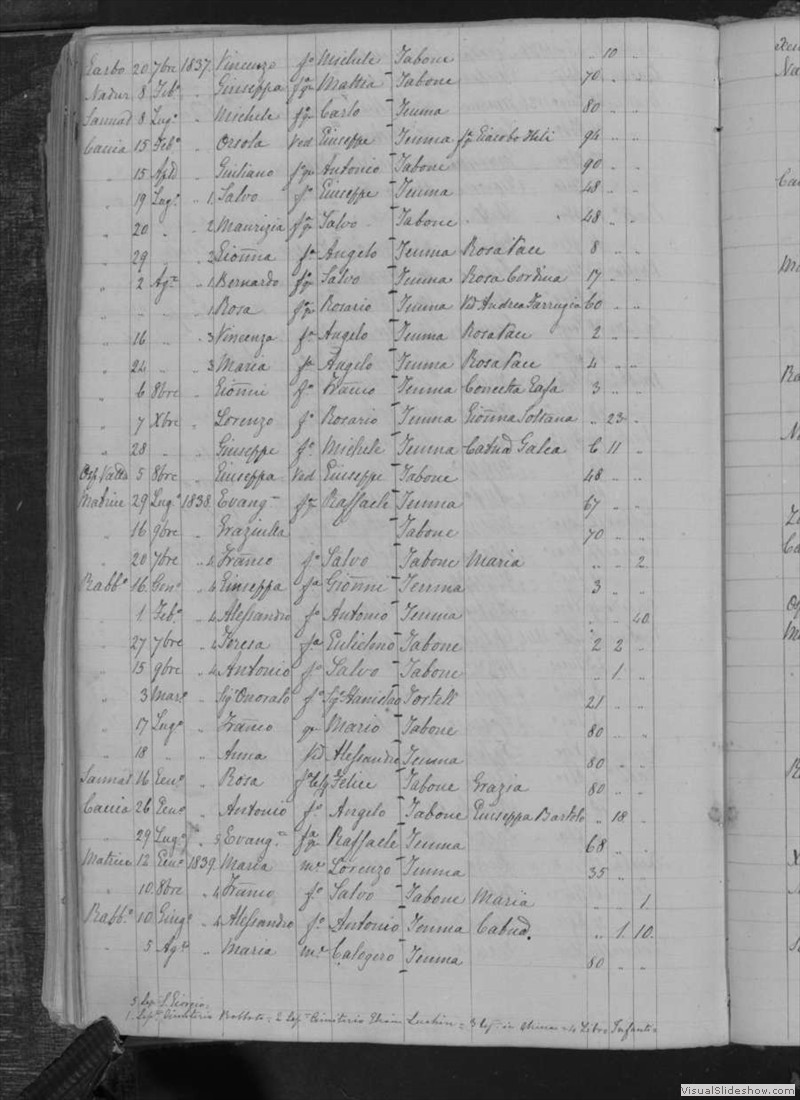 Garbo 20 7bre 1837 Vincenzo fo Michele Tabone .. 10 ..
Nadur 8 Febo .. Giuseppa fqm Mattia Tabone 70 .. ..
Sannat 8 Lugo .. Michele fqm Carlo Teuma 80 .. ..
Caccia 15 Febo .. Orsola Ved Giuseppe Teuma fqm Giacobo 94 .. ..
.. 15 Aple .. Giuliano fqm Antonio Tabone 90 .. ..
.. 19 Lugo .. 1 Salvo fo Giuseppe Teuma 48 .. ..
.. 20 .. .. 2 Maurizia fqm Salvo Tabone 48 .. ..
.. 29 .. .. 3 Gionna fa Angelo Teuma Rosa Pace 8 .. ..
.. 2 Ago .. 1 Bernardo fqm Salvo Teuma Rosa Cordina 17 .. ..
.. .. .. .. 1 Rosa fqm Rosario Teuma Vid Andrea Farrugia 60 .. ..
.. 16 .. .. 3 Vincenza fa Angelo Teuma Rosa Pace 2 .. ..
.. 24 .. .. 3 Maria fa Angelo Teuma Rosa Pace 4 .. ..
.. 6 8bre .. Gionni fo Franco Teuma Concetta 3 .. ..
.. 7 Xbre .. Lorenzo fo Rosario Teuma Gionna Soltana .. 23 ..
.. 28 .. .. Giuseppe fo Michele Teuma Catna Galea 6 11 ..
Osp Vallta 5 8bre .. Giuseppa Ved Giuseppe Tabone 48 .. ..
Matrice 29 Lugo 1838 Evangta fqm Raffaele Teuma 67 .. ..
.. 16 9bre .. Graziulla Tabone 70 .. ..
.. 20 7bre .. 4 Franco fo Salvo Tabone Maria .. .. 2
Rabbo 16 Geno .. 4 Giuseppa fa Gionni Teuma 3 .. ..
.. 1 Febo .. 4 Alessandro fo Antonio Teuma .. .. 40
.. 27 7bre .. 4 Teresa fa Tabone 2 2 ..
.. 15 9bre .. 4 Antonio fo Salvo Tabone .. 1 ..
.. 3 Marzo .. Sigr Onorato fo Sigr Stanislao Portelli 21 .. ..
.. 17 Lugo .. Franco qm Mario Tabone 80 .. ..
.. 18 .. .. Anna Vd Alessandro Teuma 80 .. ..
Sannat 16 Geno .. Rosa Felice Tabone Grazia 80 .. ..
Caccia 26 Geno .. Antonio fo Angelo Tabone Giuseppa Bartolo .. 18 ..
.. 29 Lugo .. 5 Evangta fa qm Raffaele Teuma 68 .. ..
Matrice 12 Geno 1839 Maria me Lorenzo Teuma 35 .. ..
.. 10 8bre .. 4 Franco fo Salvo Tabone Maria .. .. 1
Rabbo 10 Giugo .. 4 Alessandro fo Antonio Teuma Catna. .. 1 10
.. 5 Ago .. Maria me Calogero Teuma 80 .. ..
5 Sep S. Giorgio
1 Sepo Cimiterio = 2 Sepo Cimiterio = 3 Sepo in Chiesa = 4 Libro Infanti =
VisualSlideshow.com